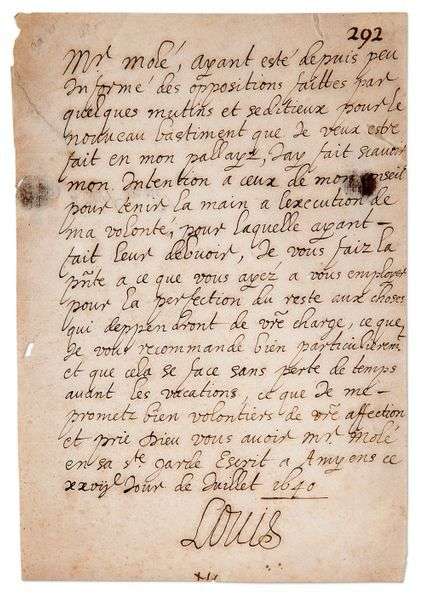 292
Mr Molé, Ayant esté depuis peu
Informé des oppositions faittes par
quelques mutins et seditieux pour le
nouveau bastiment que Je veux estre
fait en mon pallays, J'ay fait scavoir
mon Intention a ceux de mon conseil
pour tenir la main a l'execution de
ma volonté, pour laquelle ayant
fait leur debuoir, Je vous faiz la
pnte a ce que vous ayez a vous employer
pour la perfection du reste aux choses
qui deppendront de vre charge, ce que
Je vous recommande bien particulierement
et que cela se face sans perte de temps
auant les vacations, ce que Je me
prometz bien volontiers de vre affection
et prie Dieu vous auoir mr Molé
en sa ste garde Escrit a Amyens ce
xxvije Jour de Juillet 1640
Louis